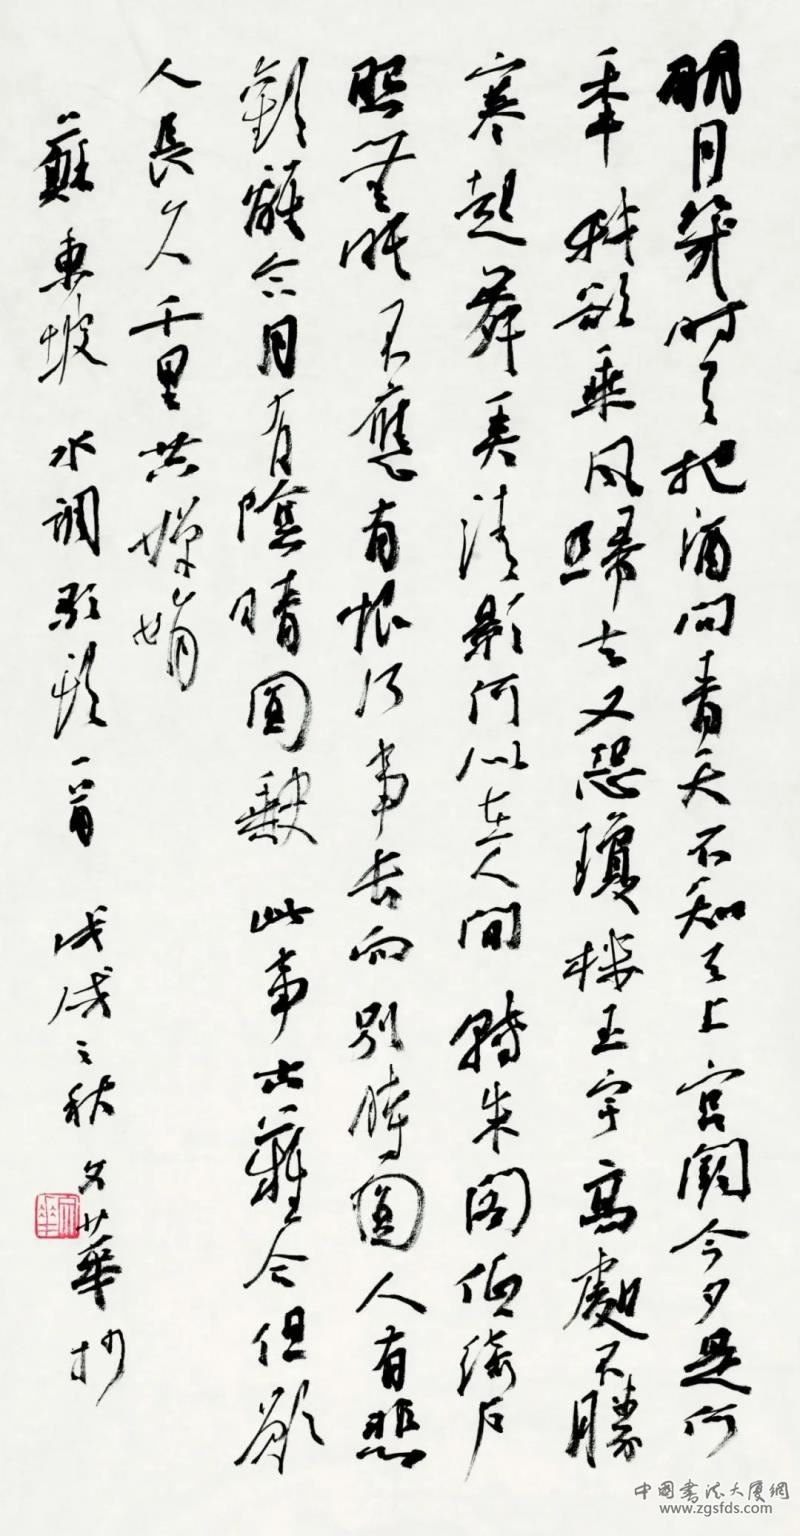 明月幾时有把酒问青天不知天上宫阙今夕是何
年我欲乘风归去又恐琼楼玉宇高處不勝
寒起舞弄清影何似在人间轉朱阁低绮户
照無眠不應有恨何事长向别時圆人有悲
歡離合月有陰晴圆缺此事古難全但願
人長久千里共嬋娟
蘇東坡水调歌頭一首戊戌之秋文華抄
中国書法大厦網
www.zgsfds.com